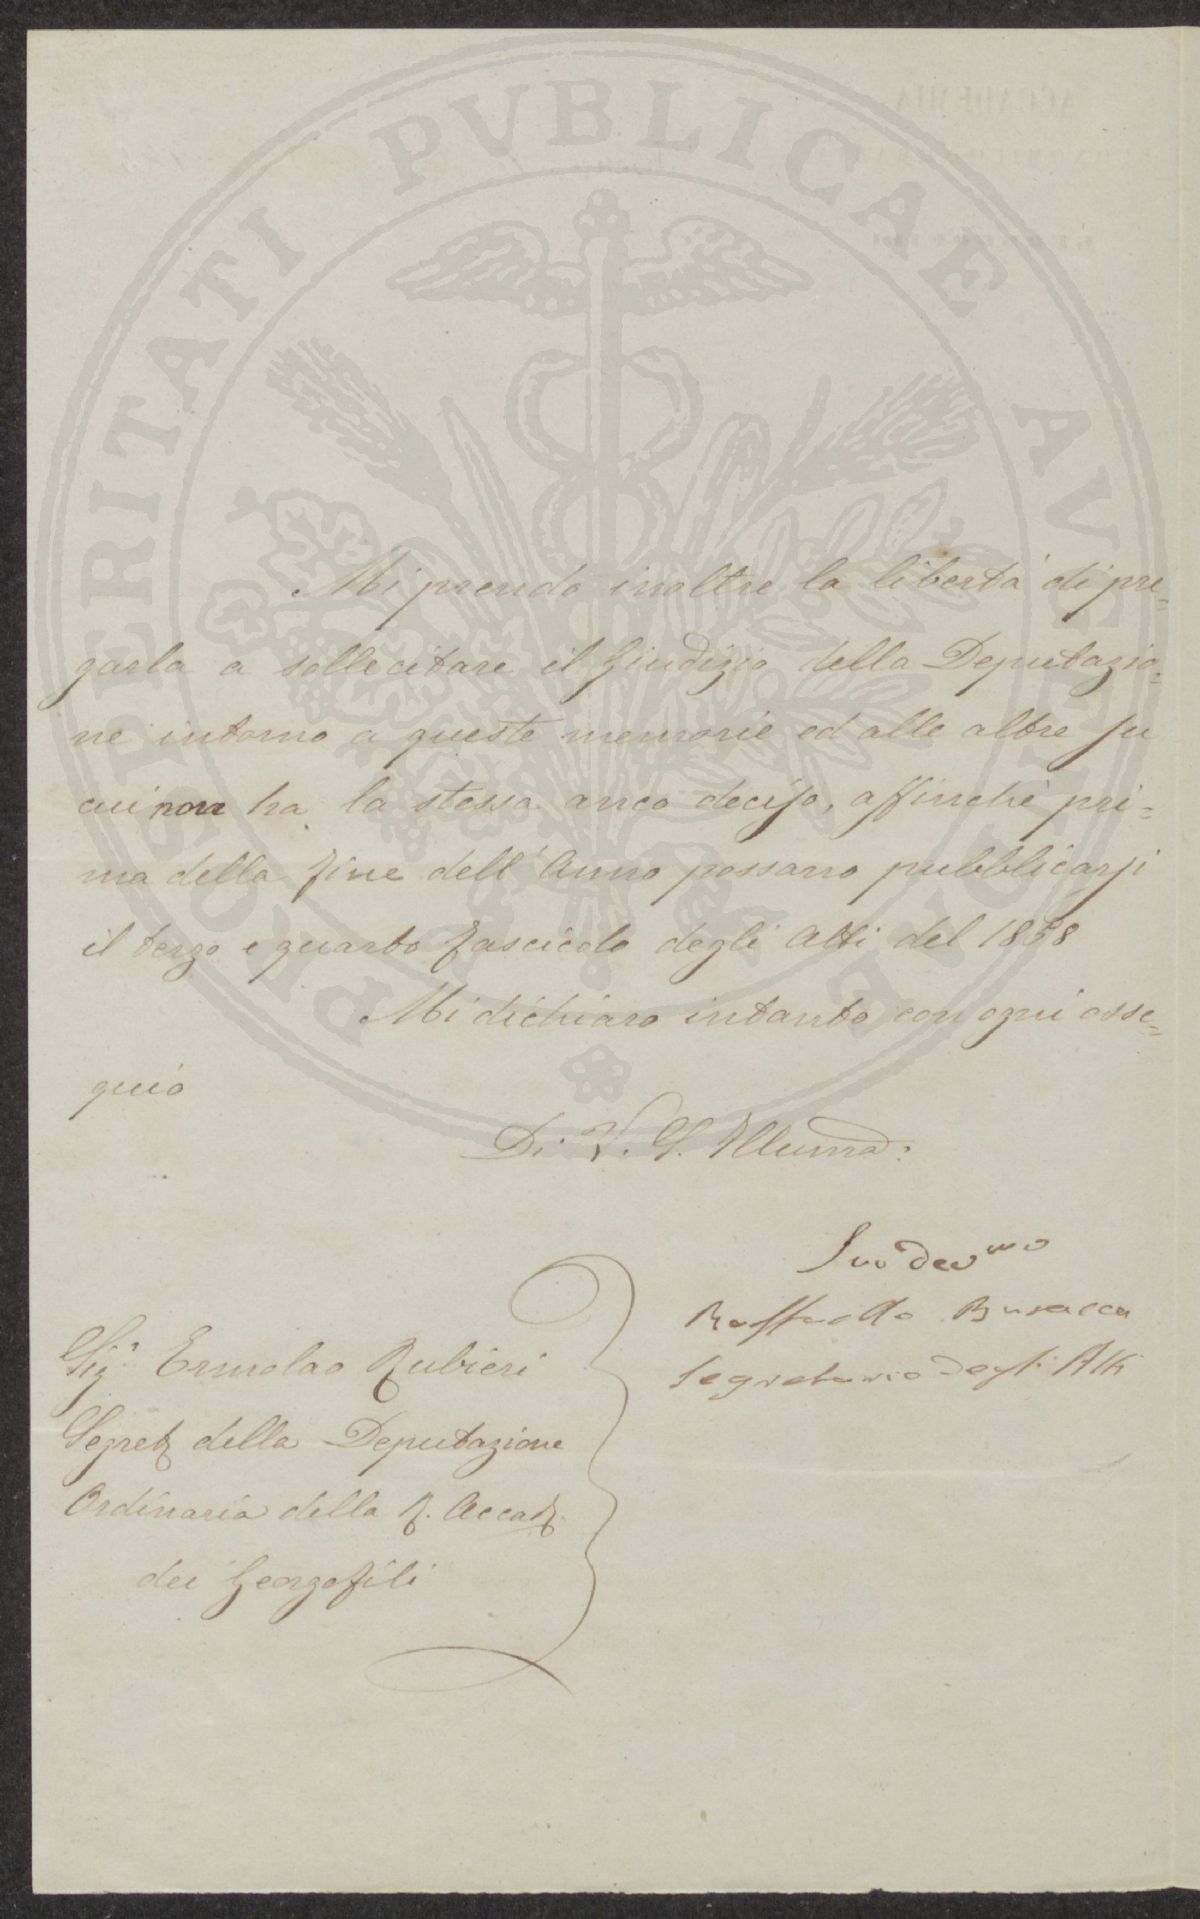 PROSPERITATI PVBLICAE AVGENDAE
Mi prendo inoltre la libertà di pre=
garla a sollecitare il Giudizio della Deputazio=
ne intorno a queste memorie ed alle altre su
cui non ha la stessa anco deciso, affinchè pri=
ma della fine dell'Anno possano pubblicarsi
il terzo e quarto fascicolo degli Atti del 1858
Mi dichiaro intanto con ogni osse=
quio
Di V. S. Illuma:
Suo devmo
Raffaello Busacca
Segretario degli Atti
Sigr Ermolao Rubieri
Segret della Deputazione
Ordinaria della R. Accad.
dei Georgofili